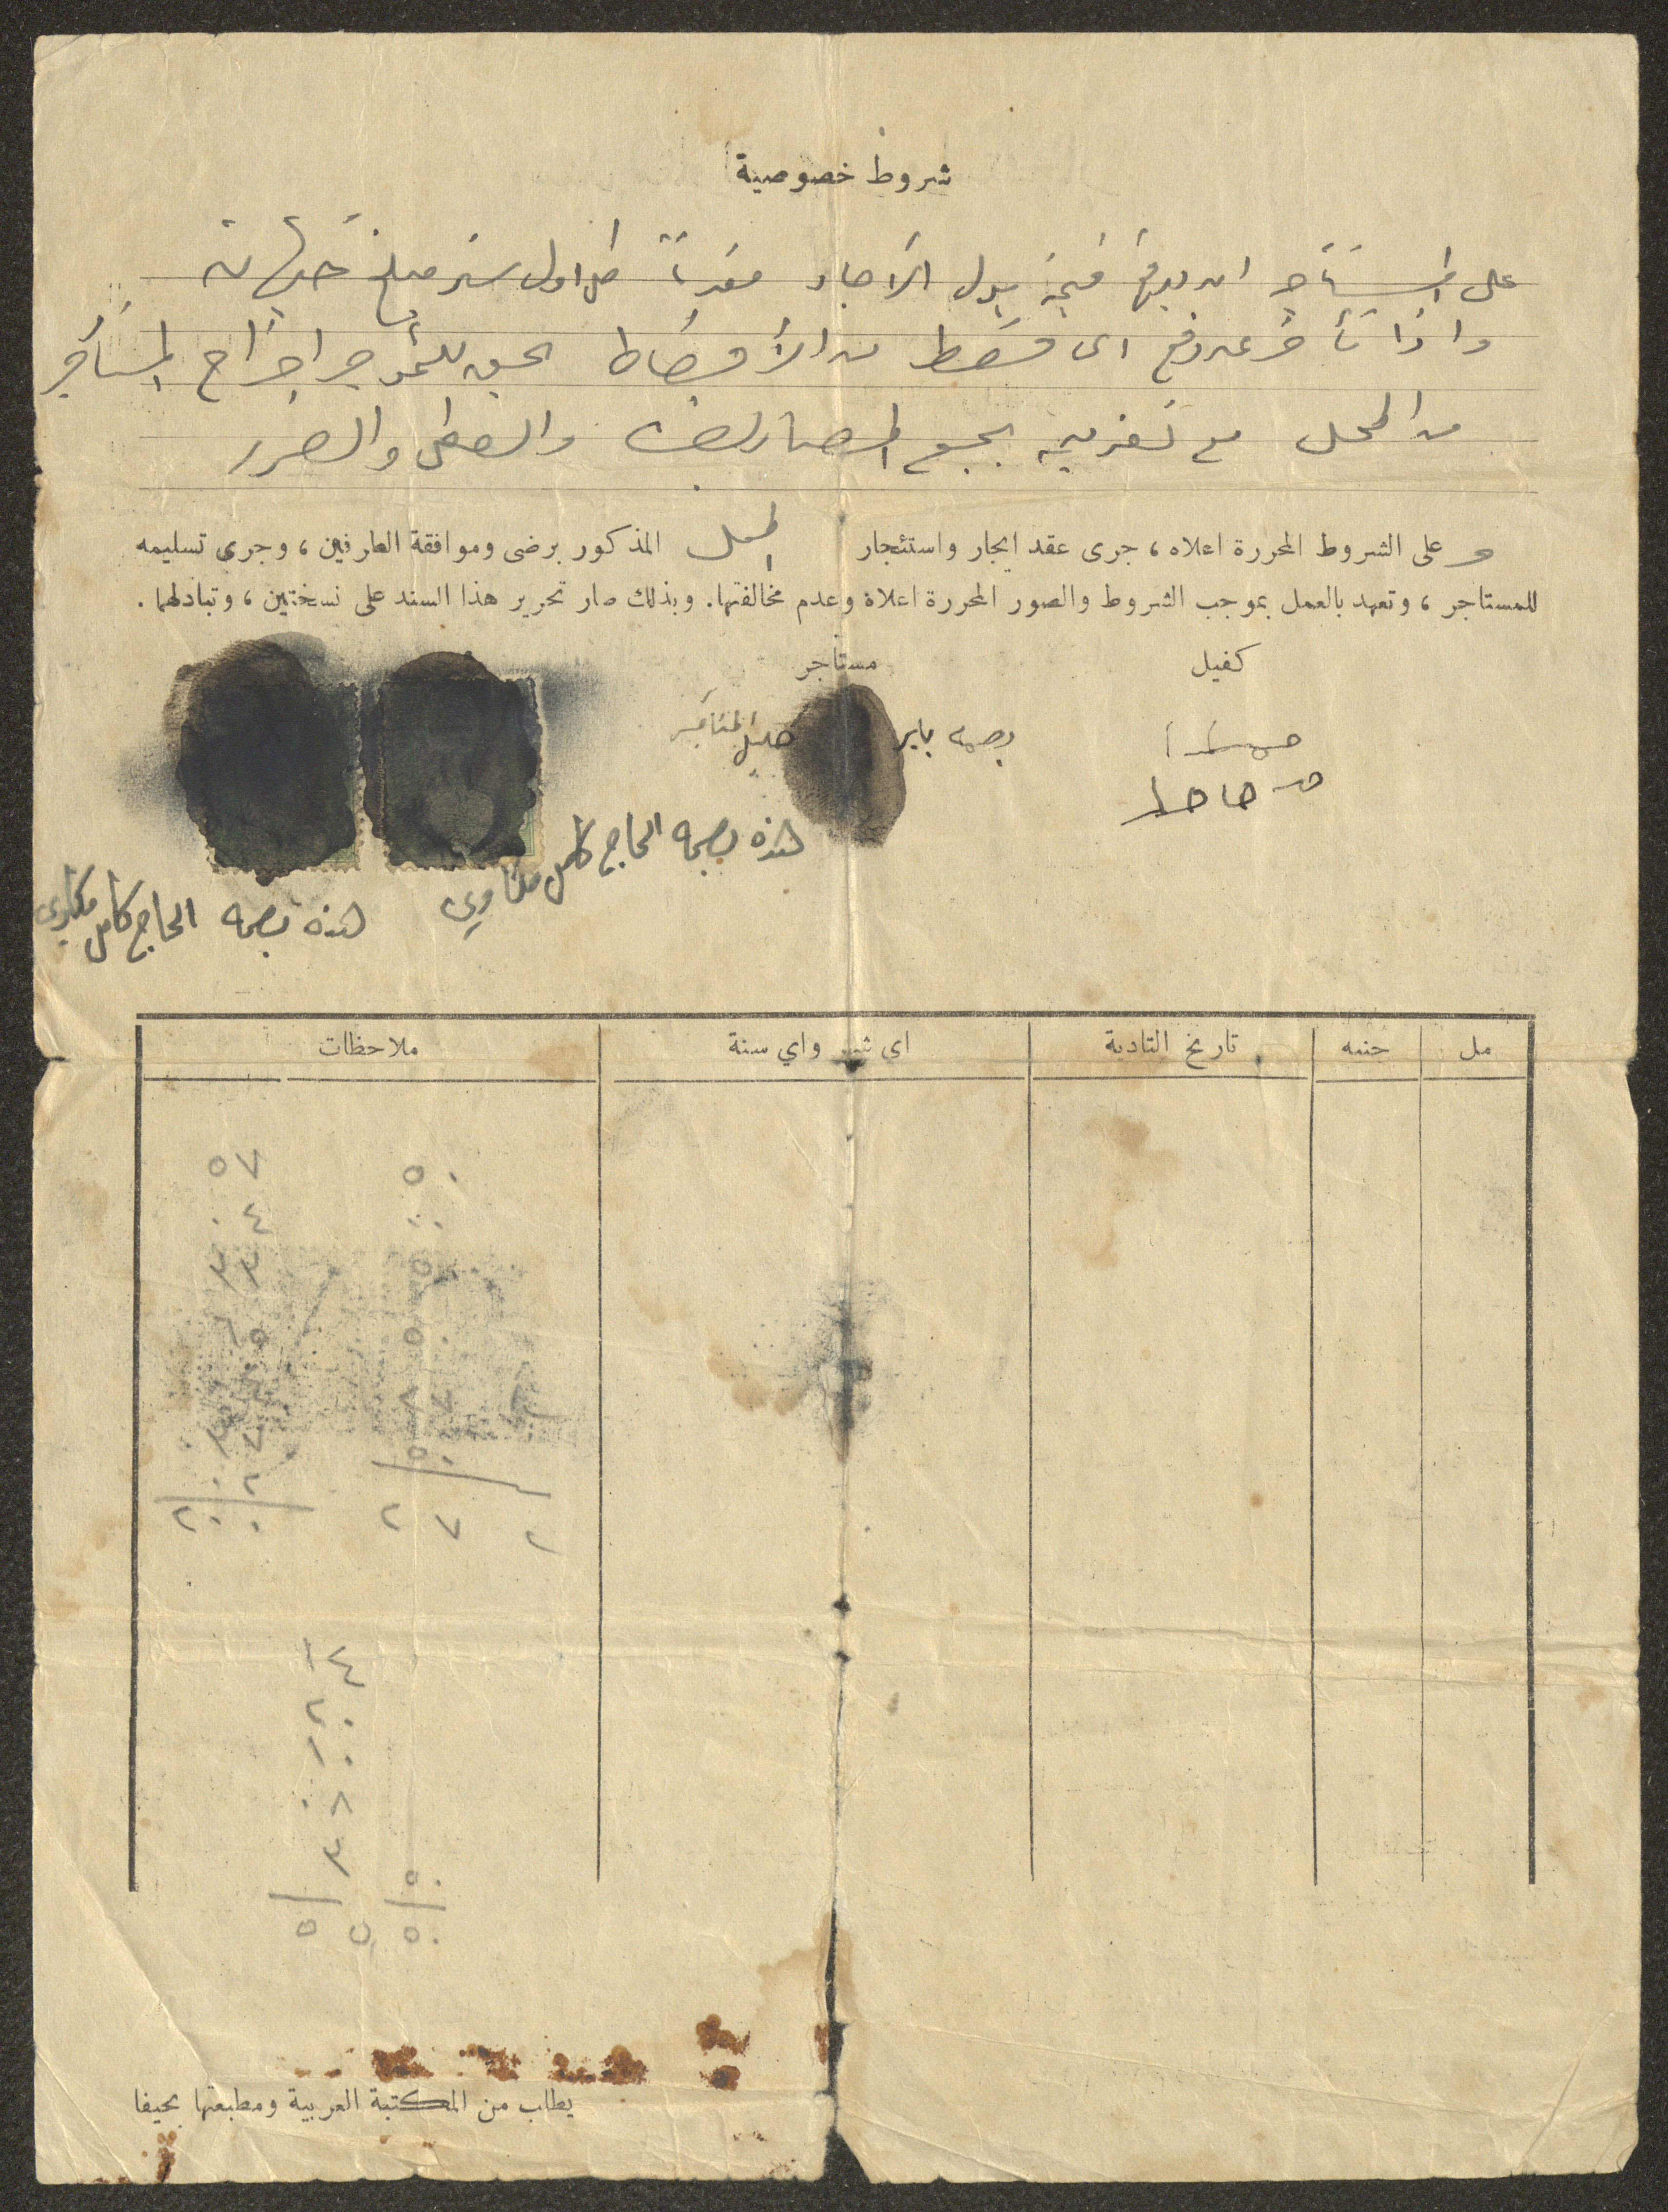 شروط خصوصية
على المستأجر ان يدفع قيمة بدل الاجار مقدماً كل اول شهر مبلغ
واذا تأخر عن دفع اى قسط من الأقساط يحق للمؤجر اخراج المستأجر
من المحل مع تغريمه بجميع المصاريف والعطل والضرر
و على الشروط المحررة اعلاه ، جرى عقد ايجار واستئجار المحل المذكور برضى وموافقة العارفين ، وجرى تسليمه
للمستاجر ، وتعهد بالعمل بموجب الشروط والصور المحررة اعلاة وعدم مخالفتها. وبذلك صار تحرير هذا السند على نسختين ، وتبادلهما .
كفيل
مستاجر
بصمة
هذه بصمة الحاج كامل
هذه بصمة الحاج كامل
مل
جنيه
تاريخ التادية
اى شهر واي سنة
ملاحظات
٥٠
٥٧
٠٤
٣٣
٥٠
٢٠٠
٢ ٧ ٢
١٤
٢٠
١٠
٠٨
٣
٥٠
٥ ٥ ٥٠
يطلب من المكتبة العربية ومطبعتها بحيفا